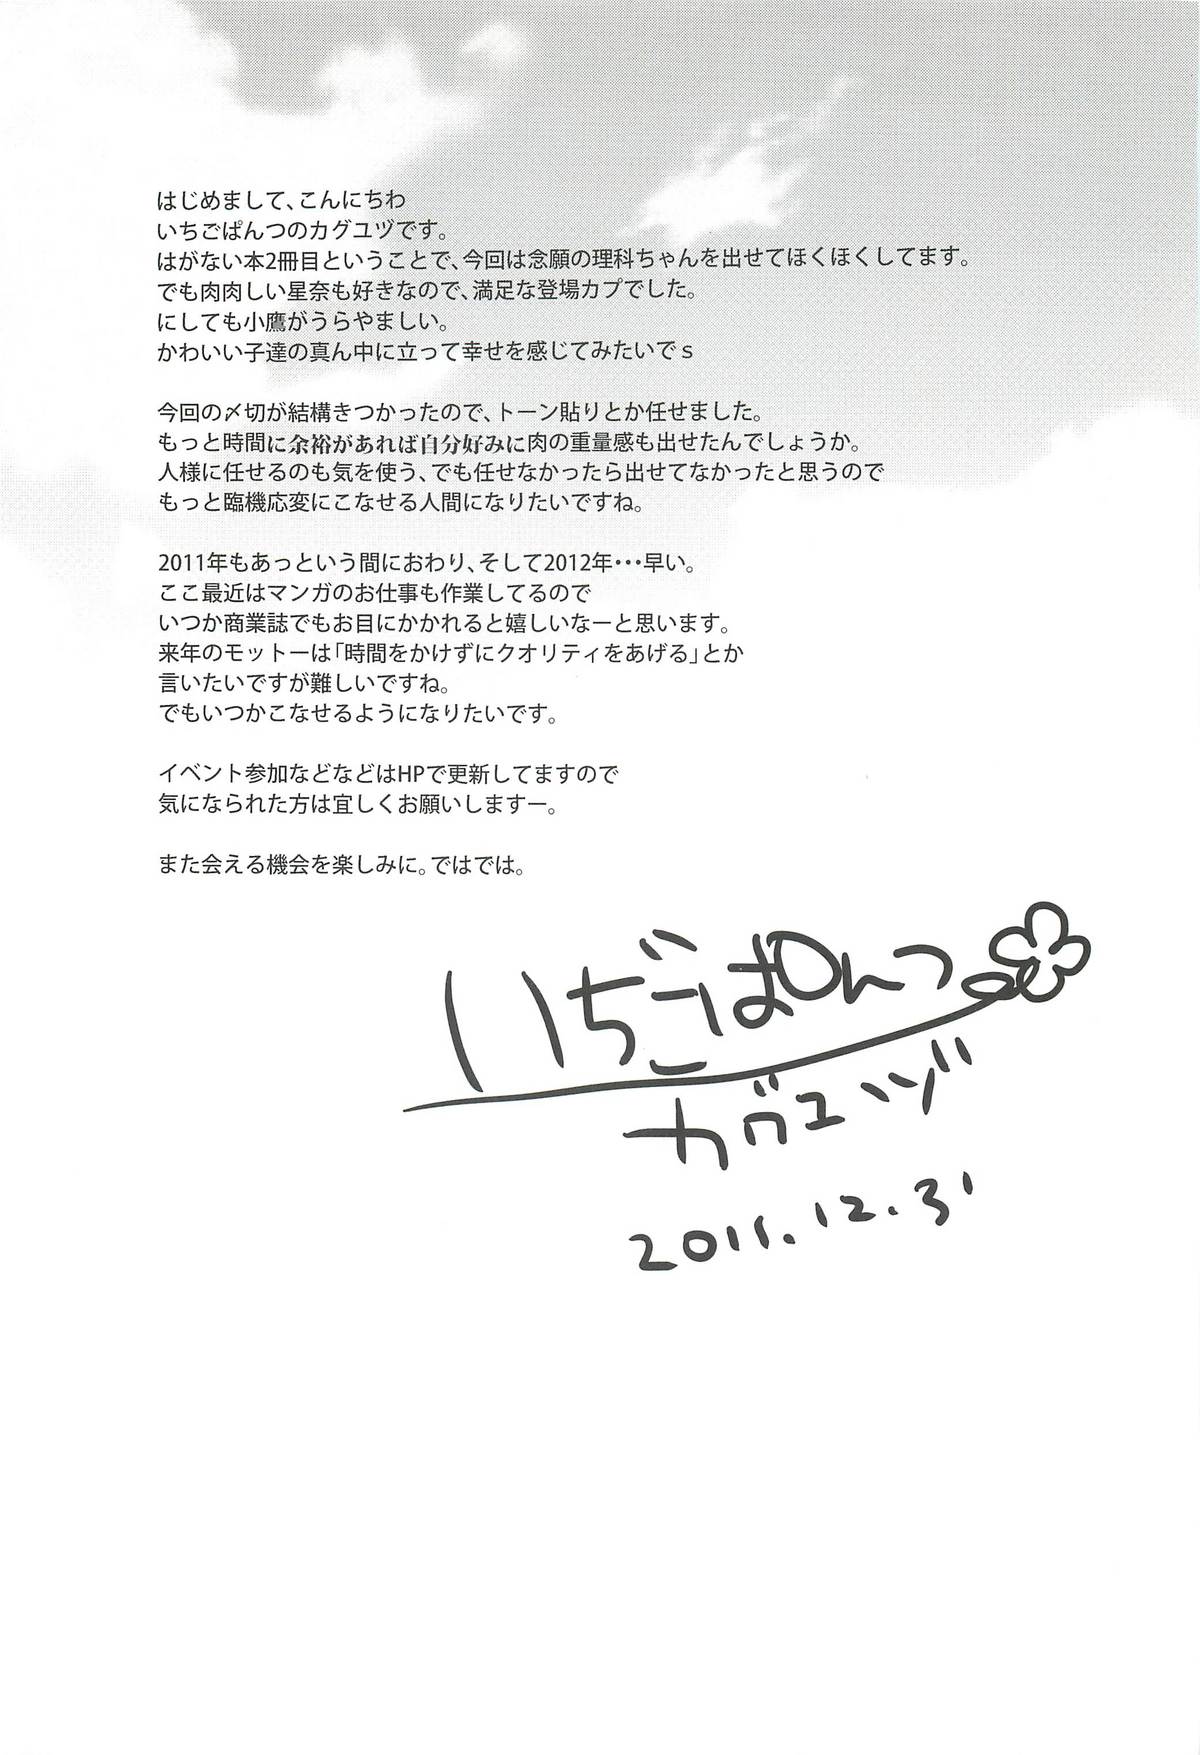 はじめまして、こんにちわ
いちごぱんつのカグユヅです。
はがない本2冊目ということで、今回は念願の理科ちゃんを出せてほくほくしてます。
でも肉肉しい星奈も好きなので、満足な登場カプでした。
にしても小鷹がうらやましい。
かわいい子達の真ん中に立って幸せを感じてみたいでｓ
今回の〆切が結構きつかったので、トーン貼りとか任せました。
もっと時間に余裕があれば自分好みに肉の重量感も出せたんでしょうか。
人様に任せるのも気を使う、でも任せなかったら出せてなかったと思うので
もっと臨機応変にこなせる人間になりたいですね。
2011年もあっという間におわり、そして2012年・・・早い。
ここ最近はマンガのお仕事も作業してるので
いつか商業誌でもお目にかかれると嬉しいなーと思います。
来年のモットーは「時間をかけずにクオリティをあげる」とか
言いたいですが難しいですね。
でもいつかこなせるようになりたいです。
イベント参加などなどはHPで更新してますので
気になられた方は宜しくお願いしますー。
また会える機会を楽しみに。ではでは。
いちごぱんつ
カグユヅ
2011.12.31